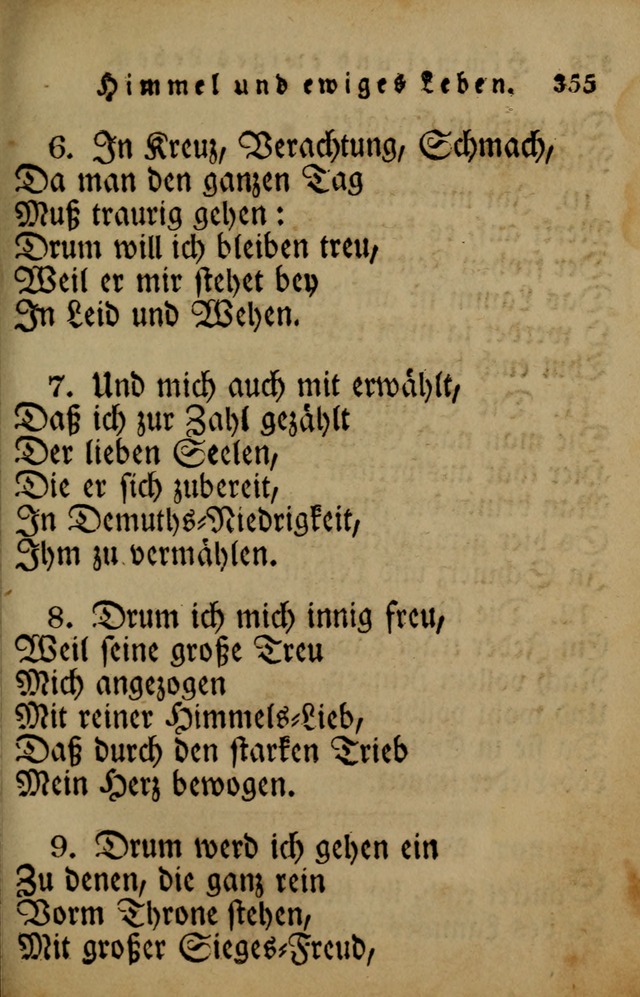 Himmel und ewiges Leben. 355
6. In Kreuz, Verachtung, Schmach,
Da man den ganzen Tag
Muß traurig gehen:
Drum will ich bleiben treu,
Weil er mir stehet bey
In Leid und Wehen.
7. Und mich auch mit erwählt,
Daß ich zur Zahl gezählt
Der lieben Seelen,
Die er sich zubereit,
In Demuths-Niedrigkeit,
Ihm zu vermählen.
8. Drum ich mich innig freu,
Weil seine große Treu
Mich angezogen
Mit reiner Himmels-Lieb,
Daß durch den starken Trieb
Mein Herz bewogen.
9. Drum werd ich gehen ein
Zu denen, die ganz rein
Vorm Throne stehen,
Mit großer Sieges-Freud,